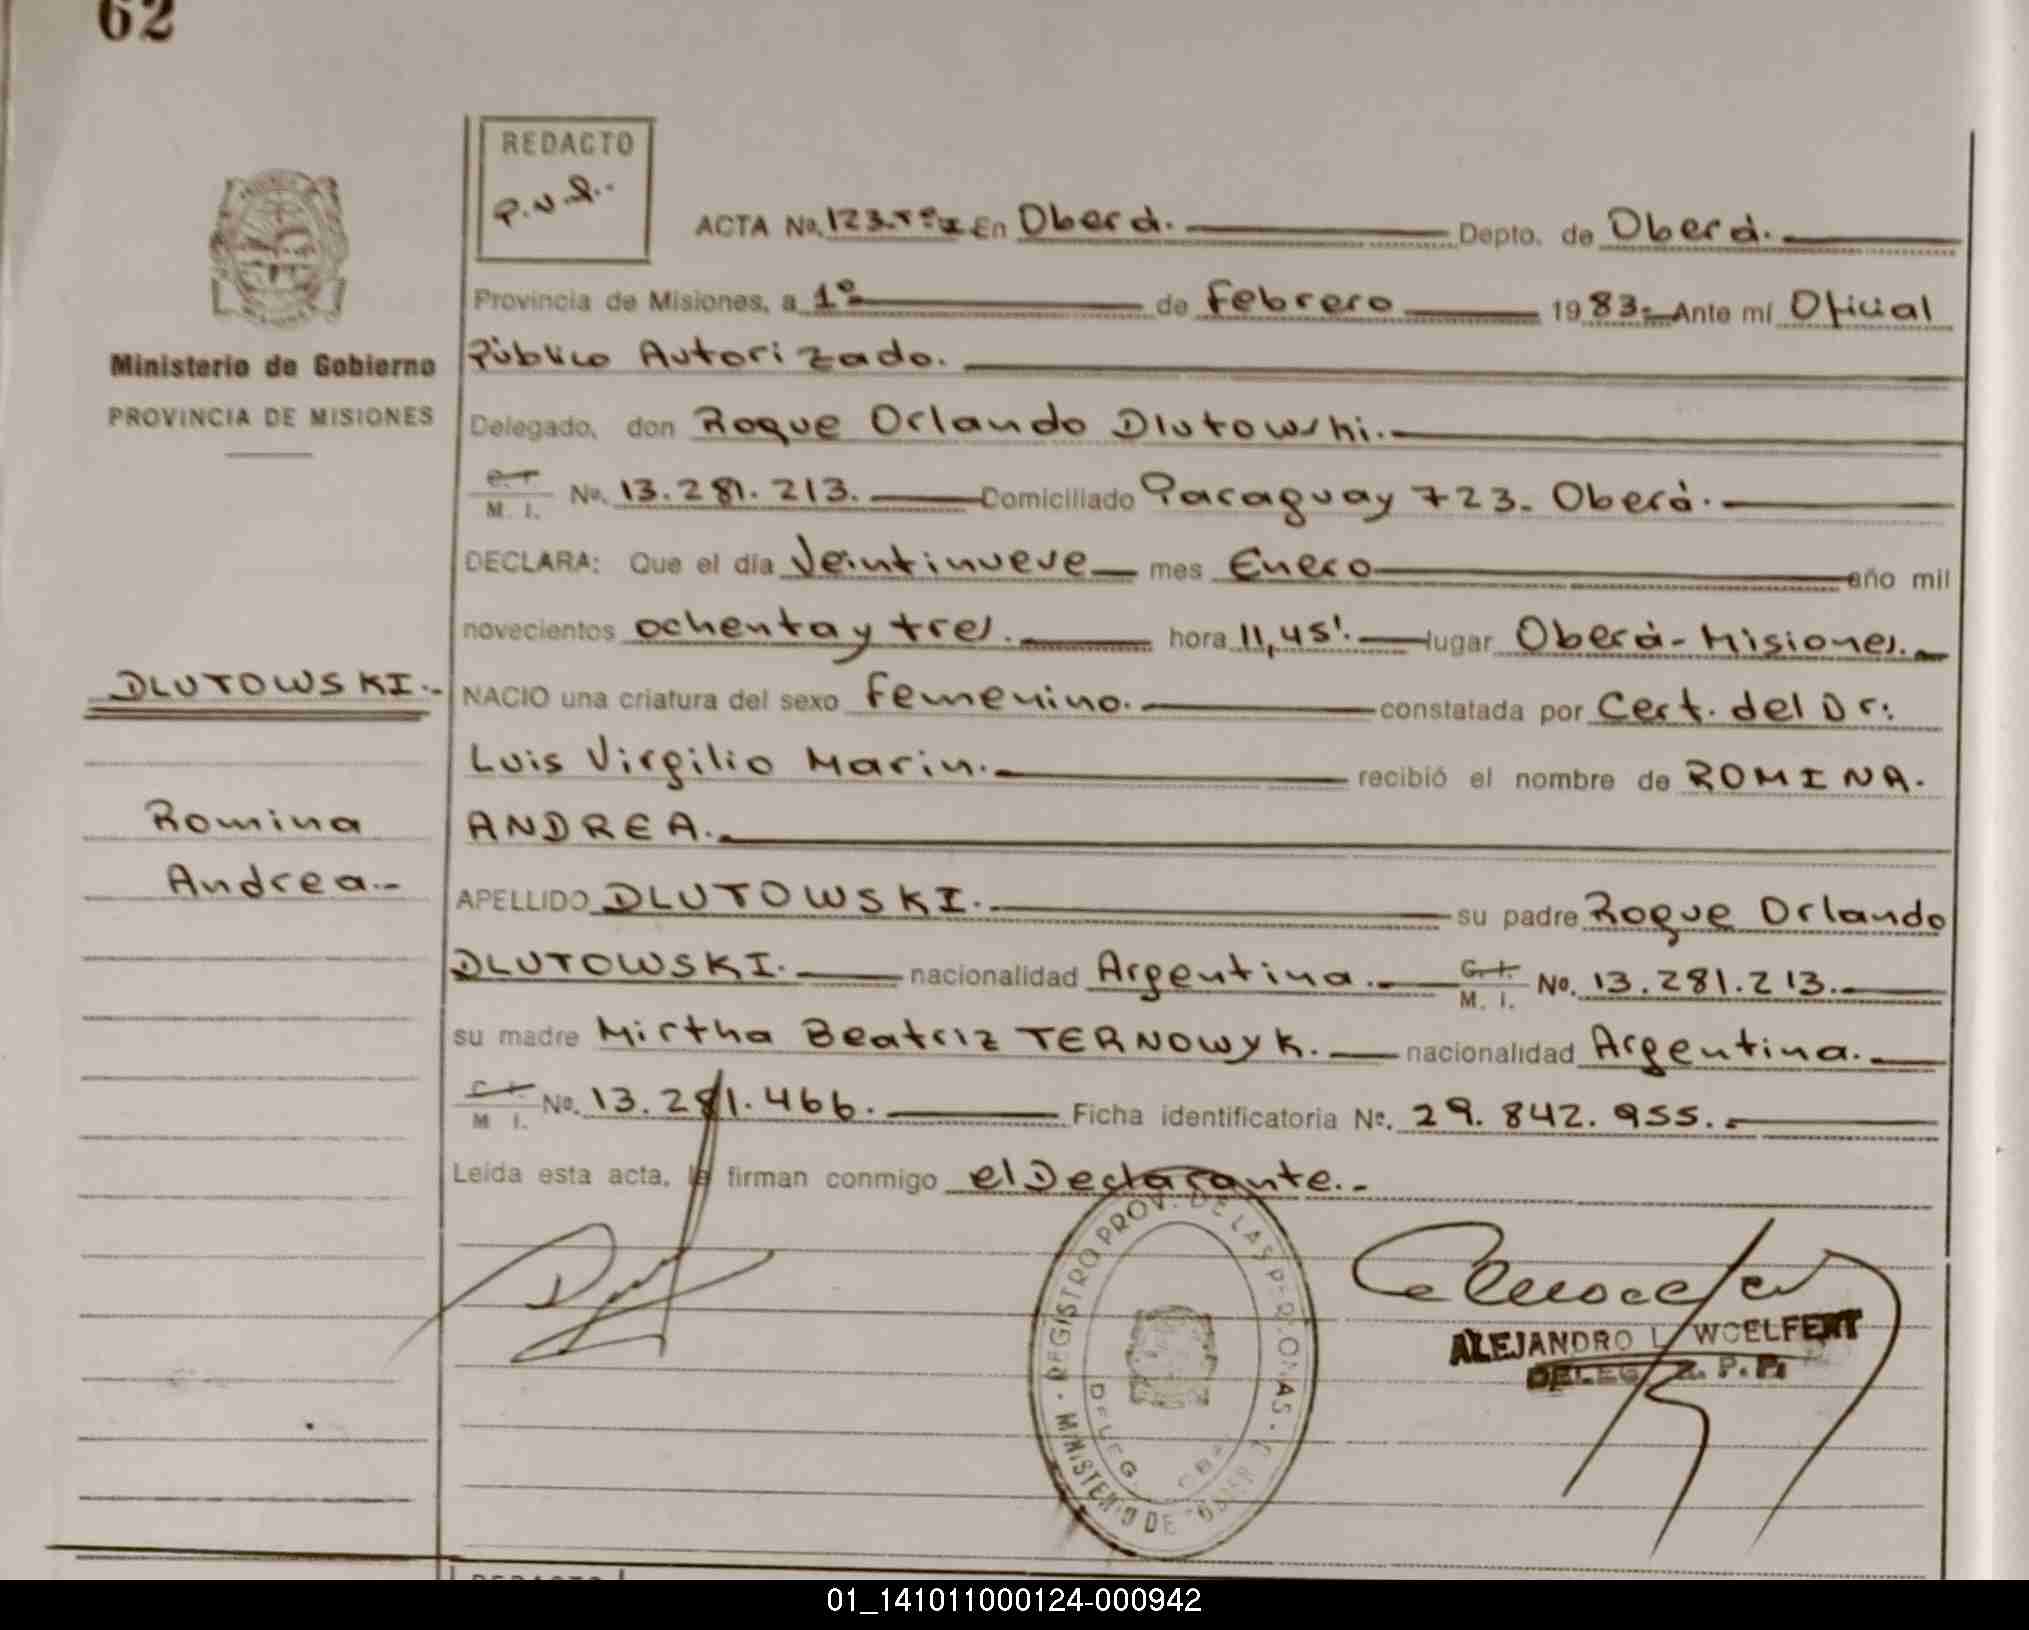 62
REDACTO
P.V.S..
ACTA No. 123.Tº I En Oberá. Depto. de Oberá.
Provincia de Misiones, a 1º de Febrero 1983.- Ante mí Oficial
Ministerio de Gobierno
Público Autorizado.
PROVINCIA DE MISIONES
Delegado, don Roque Orlando Dlutowski.
C. I.
M. I. No. 13.281.213. Domiciliado Paraguay 723. Oberá.
DECLARA: Que el día Veintinueve mes Enero año mil
novecientos ochenta y tres. hora 11,45'. lugar Oberá-Misiones.
DLUTOWSKI.-
NACIO una criatura del sexo Femenino. constatada por Cert. del Dr:
Luis Virgilio Marin. recibió el nombre de ROMINA.
Romina
ANDREA.
Andrea.-
APELLIDO DLUTOWSKI. su padre Roque Orlando
DLUTOWSKI. nacionalidad Argentina. C. I.
M. I. No. 13.281.213.
su madre Mirtha Beatriz TERNOWYK. nacionalidad Argentina.
C. I.
M. I. No. 13.281.466. Ficha identificatoria No. 29.842.955.
Leída esta acta, la firman conmigo el Declarante.-
REGISTRO PROV. DE LAS PERSONAS
MINISTERIO DE
DELEG.
ALEJANDRO L. WOELFERT
DELEG. R. P. P.
REDACTO
01_141011000124-000942